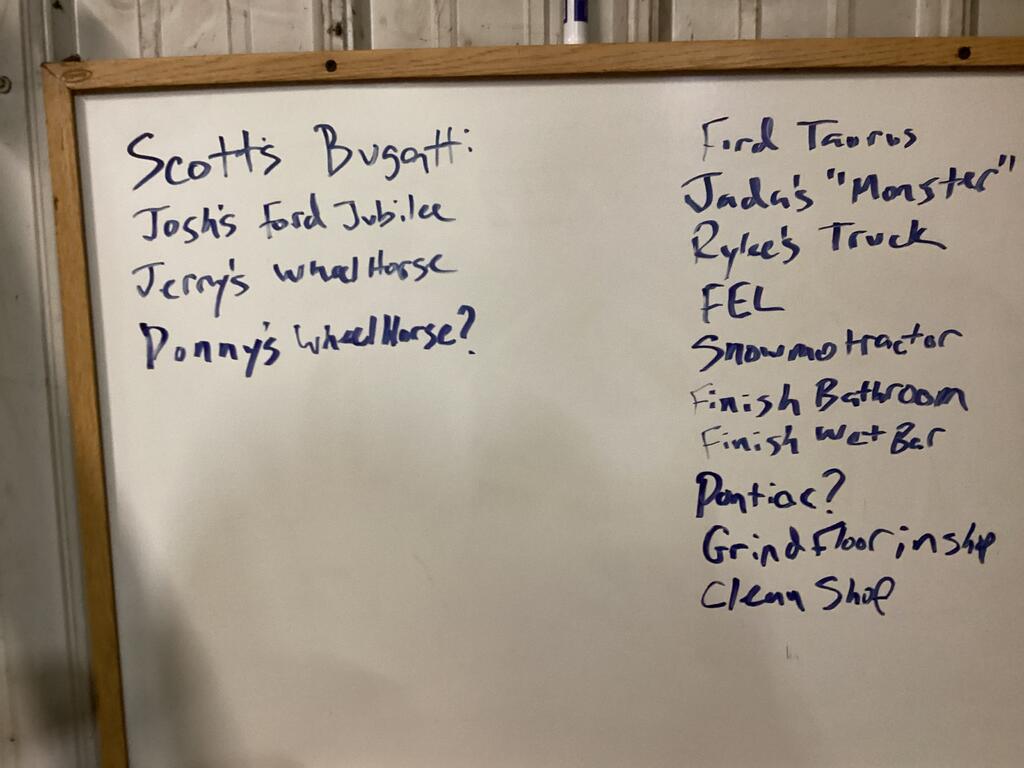 Scott's Bugatti
Josh's Ford Jubilee
Jerry's Wheel Horse
Donny's Wheel Horse?
Ford Taurus
Jada's "Monster"
Rylee's Truck
FEL
Snowmotractor
Finish Bathroom
Finish Wet Bar
Pontiac?
Grind floor in shop
Clean Shop